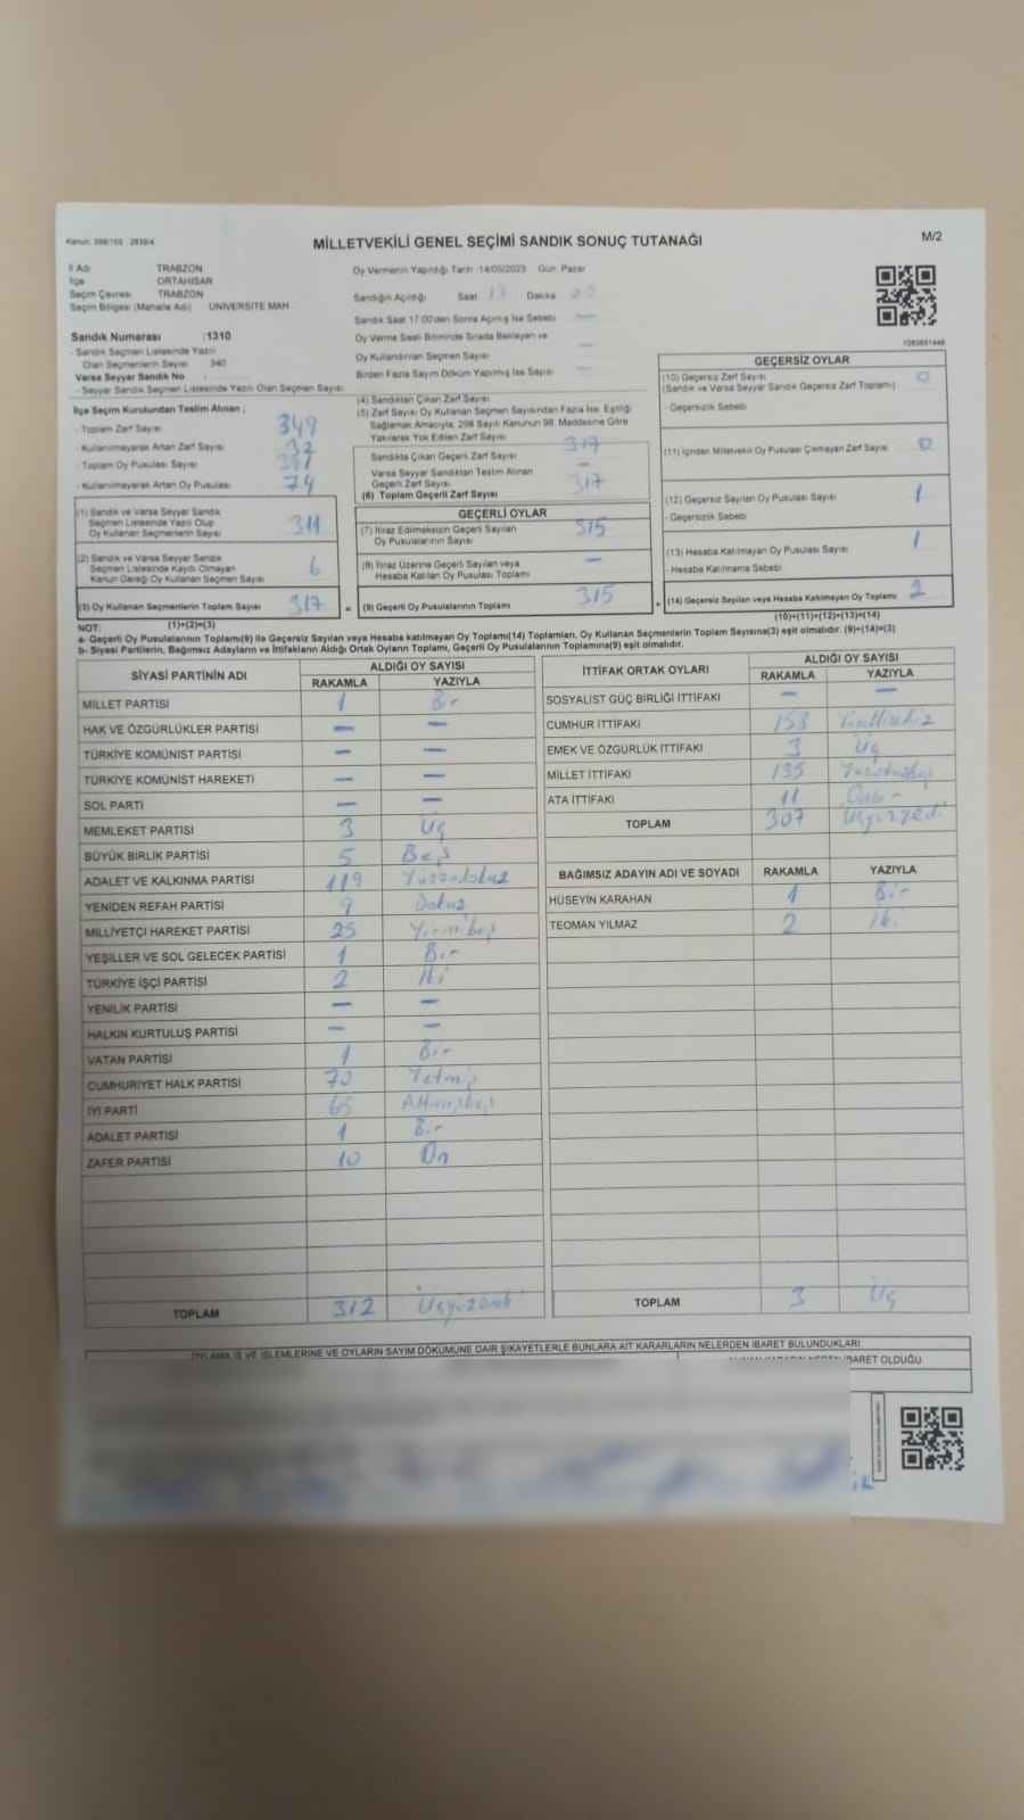 Kanun: 298/105 2839/4
MİLLETVEKİLİ GENEL SEÇİMİ SANDIK SONUÇ TUTANAĞI
M/2
İl Adı TRABZON
İlçe ORTAHİSAR
Seçim Çevresi TRABZON
Seçim Bölgesi (Mahalle Adı) UNIVERSITE MAH.
Sandık Numarası :1310
- Sandık Seçmen Listesinde Yazılı
Olan Seçmenlerin Sayısı 340
Varsa Seyyar Sandık No
- Seyyar Sandık Seçmen Listesinde Yazılı Olan Seçmen Sayısı
Oy Vermenin Yapıldığı Tarih :14/05/2023 Gün: Pazar
Sandığın Açıldığı Saat 17 Dakika
Sandık Saat 17:00'den Sonra Açılmış İse Sebebi —
Oy Verme Saati Bitiminde Sırada Bekleyen ve
Oy Kullandırılan Seçmen Sayısı —
Birden Fazla Sayım Döküm Yapılmış İse Sayısı —
İlçe Seçim Kurulundan Teslim Alınan ;
- Toplam Zarf Sayısı 349
- Kullanılmayarak Artan Zarf Sayısı
- Toplam Oy Pusulası Sayısı
- Kullanılmayarak Artan Oy Pusulası 74
(1) Sandık ve Varsa Seyyar Sandık
Seçmen Listesinde Yazılı Olup
Oy Kullanan Seçmenlerin Sayısı 311
(2) Sandık ve Varsa Seyyar Sandık
Seçmen Listesinde Kaydı Olmayan
Kanun Gereği Oy Kullanan Seçmen Sayısı 6
(3) Oy Kullanan Seçmenlerin Toplam Sayısı 317
(1)+(2)=(3)
(4) Sandıktan Çıkan Zarf Sayısı
(5) Zarf Sayısı Oy Kullanan Seçmen Sayısından Fazla İse, Eşitliği
Sağlamak Amacıyla, 298 Sayılı Kanunun 98. Maddesine Göre
Yakılarak Yok Edilen Zarf Sayısı
Sandıkta Çıkan Geçerli Zarf Sayısı 317
Varsa Seyyar Sandıktan Teslim Alınan
Geçerli Zarf Sayısı —
(6) Toplam Geçerli Zarf Sayısı 317
GEÇERLİ OYLAR
(7) İtiraz Edilmeksizin Geçerli Sayılan
Oy Pusulalarının Sayısı 315
(8) İtiraz Üzerine Geçerli Sayılan veya
Hesaba Katılan Oy Pusulası Toplamı —
= (9) Geçerli Oy Pusulalarının Toplamı 315
GEÇERSİZ OYLAR
(10) Geçersiz Zarf Sayısı 0
(Sandık ve Varsa Seyyar Sandık Geçersiz Zarf Toplamı)
- Geçersizlik Sebebi
(11) İçinden Milletvekili Oy Pusulası Çıkmayan Zarf Sayısı 0
(12) Geçersiz Sayılan Oy Pusulası Sayısı 1
- Geçersizlik Sebebi
(13) Hesaba Katılmayan Oy Pusulası Sayısı 1
- Hesaba Katılmama Sebebi
+ (14) Geçersiz Sayılan veya Hesaba Katılmayan Oy Toplamı 2
(10)+(11)+(12)+(13)=(14)
NOT:
a- Geçerli Oy Pusulalarının Toplamı(9) ile Geçersiz Sayılan veya Hesaba katılmayan Oy Toplamı(14) Toplamları, Oy Kullanan Seçmenlerin Toplam Sayısına(3) eşit olmalıdır. (9)+(14)=(3)
b- Siyasi Partilerin, Bağımsız Adayların ve İttifakların Aldığı Ortak Oyların Toplamı, Geçerli Oy Pusulalarının Toplamına(9) eşit olmalıdır.
SİYASİ PARTİNİN ADI ALDIĞI OY SAYISI
RAKAMLA YAZIYLA
MİLLET PARTİSİ 1 Bir
HAK VE ÖZGÜRLÜKLER PARTİSİ — —
TÜRKİYE KOMÜNİST PARTİSİ — —
TÜRKİYE KOMÜNİST HAREKETİ — —
SOL PARTİ — —
MEMLEKET PARTİSİ 3 Üç
BÜYÜK BİRLİK PARTİSİ 5 Beş
ADALET VE KALKINMA PARTİSİ 119 Yüzondokuz
YENİDEN REFAH PARTİSİ 9 Dokuz
MİLLİYETÇİ HAREKET PARTİSİ 25 Yirmibeş
YEŞİLLER VE SOL GELECEK PARTİSİ 1 Bir
TÜRKİYE İŞÇİ PARTİSİ 2 İki
YENİLİK PARTİSİ — —
HALKIN KURTULUŞ PARTİSİ — —
VATAN PARTİSİ 1 Bir
CUMHURİYET HALK PARTİSİ 70 Yetmiş
İYİ PARTİ 65 Altmışbeş
ADALET PARTİSİ 1 Bir
ZAFER PARTİSİ 10 On
TOPLAM 312 Üçyüzoniki
İTTİFAK ORTAK OYLARI ALDIĞI OY SAYISI
RAKAMLA YAZIYLA
SOSYALİST GÜÇ BİRLİĞİ İTTİFAKI — —
CUMHUR İTTİFAKI 158 Yüzellisekiz
EMEK VE ÖZGÜRLÜK İTTİFAKI 3 Üç
MİLLET İTTİFAKI 135 Yüzotuzbeş
ATA İTTİFAKI 11 Onbir
TOPLAM 307 Üçyüzyedi
BAĞIMSIZ ADAYIN ADI VE SOYADI RAKAMLA YAZIYLA
HÜSEYİN KARAHAN 1 Bir
TEOMAN YILMAZ 2 İki
TOPLAM 3 Üç
İŞ VE İŞLEMLERİNE VE OYLARIN SAYIM DÖKÜMÜNE DAİR ŞİKAYETLERLE BUNLARA AİT KARARLARIN NELERDEN İBARET BULUNDUKLARI
İBARET OLDUĞU